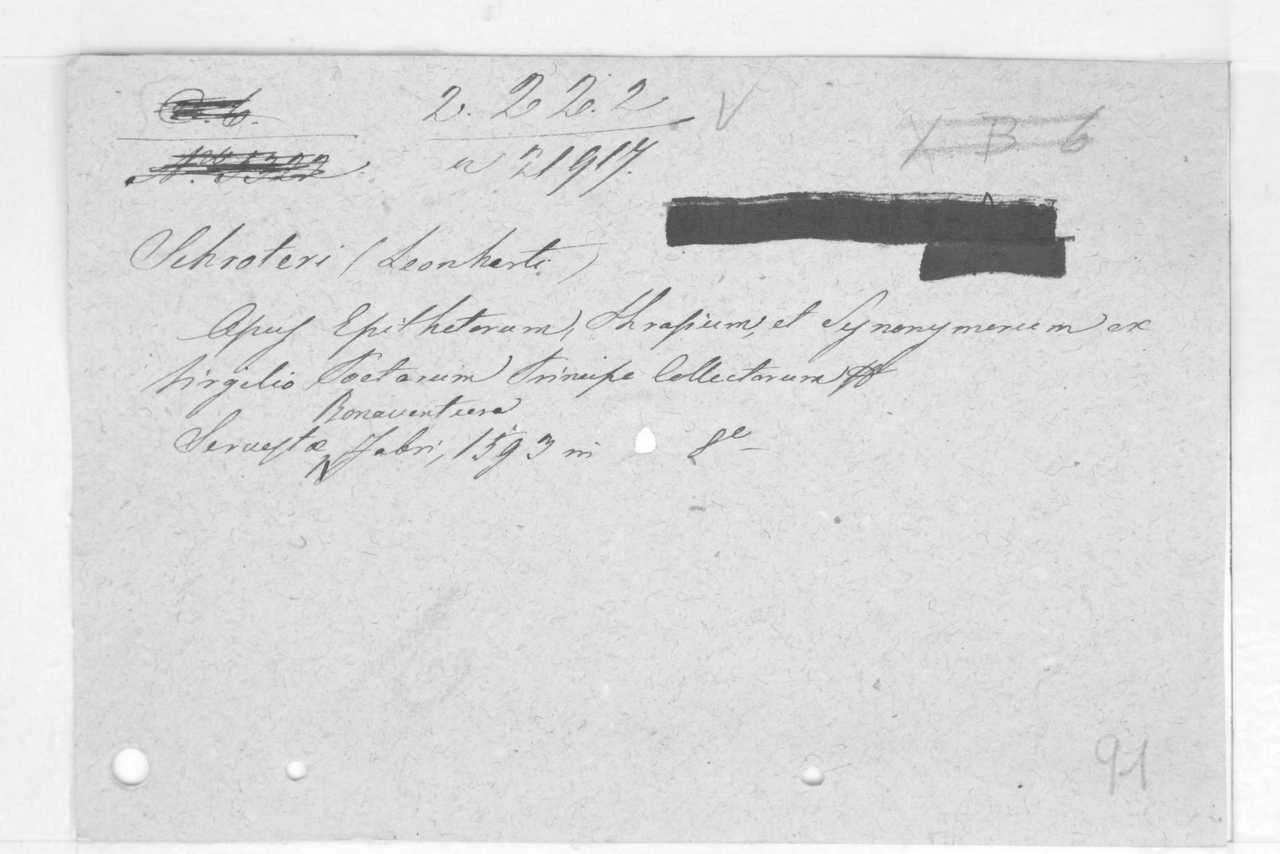 2. 2 2. 2 V
X B 6
n 21917.
Schroteri (Leonharti)
Opus Epithetorum, Phrasium, et Synonymorum ex
Virgilio Poetarum Principe Collectorum
Bonaventura
Servestæ Fabri, 1593 in 8º
91